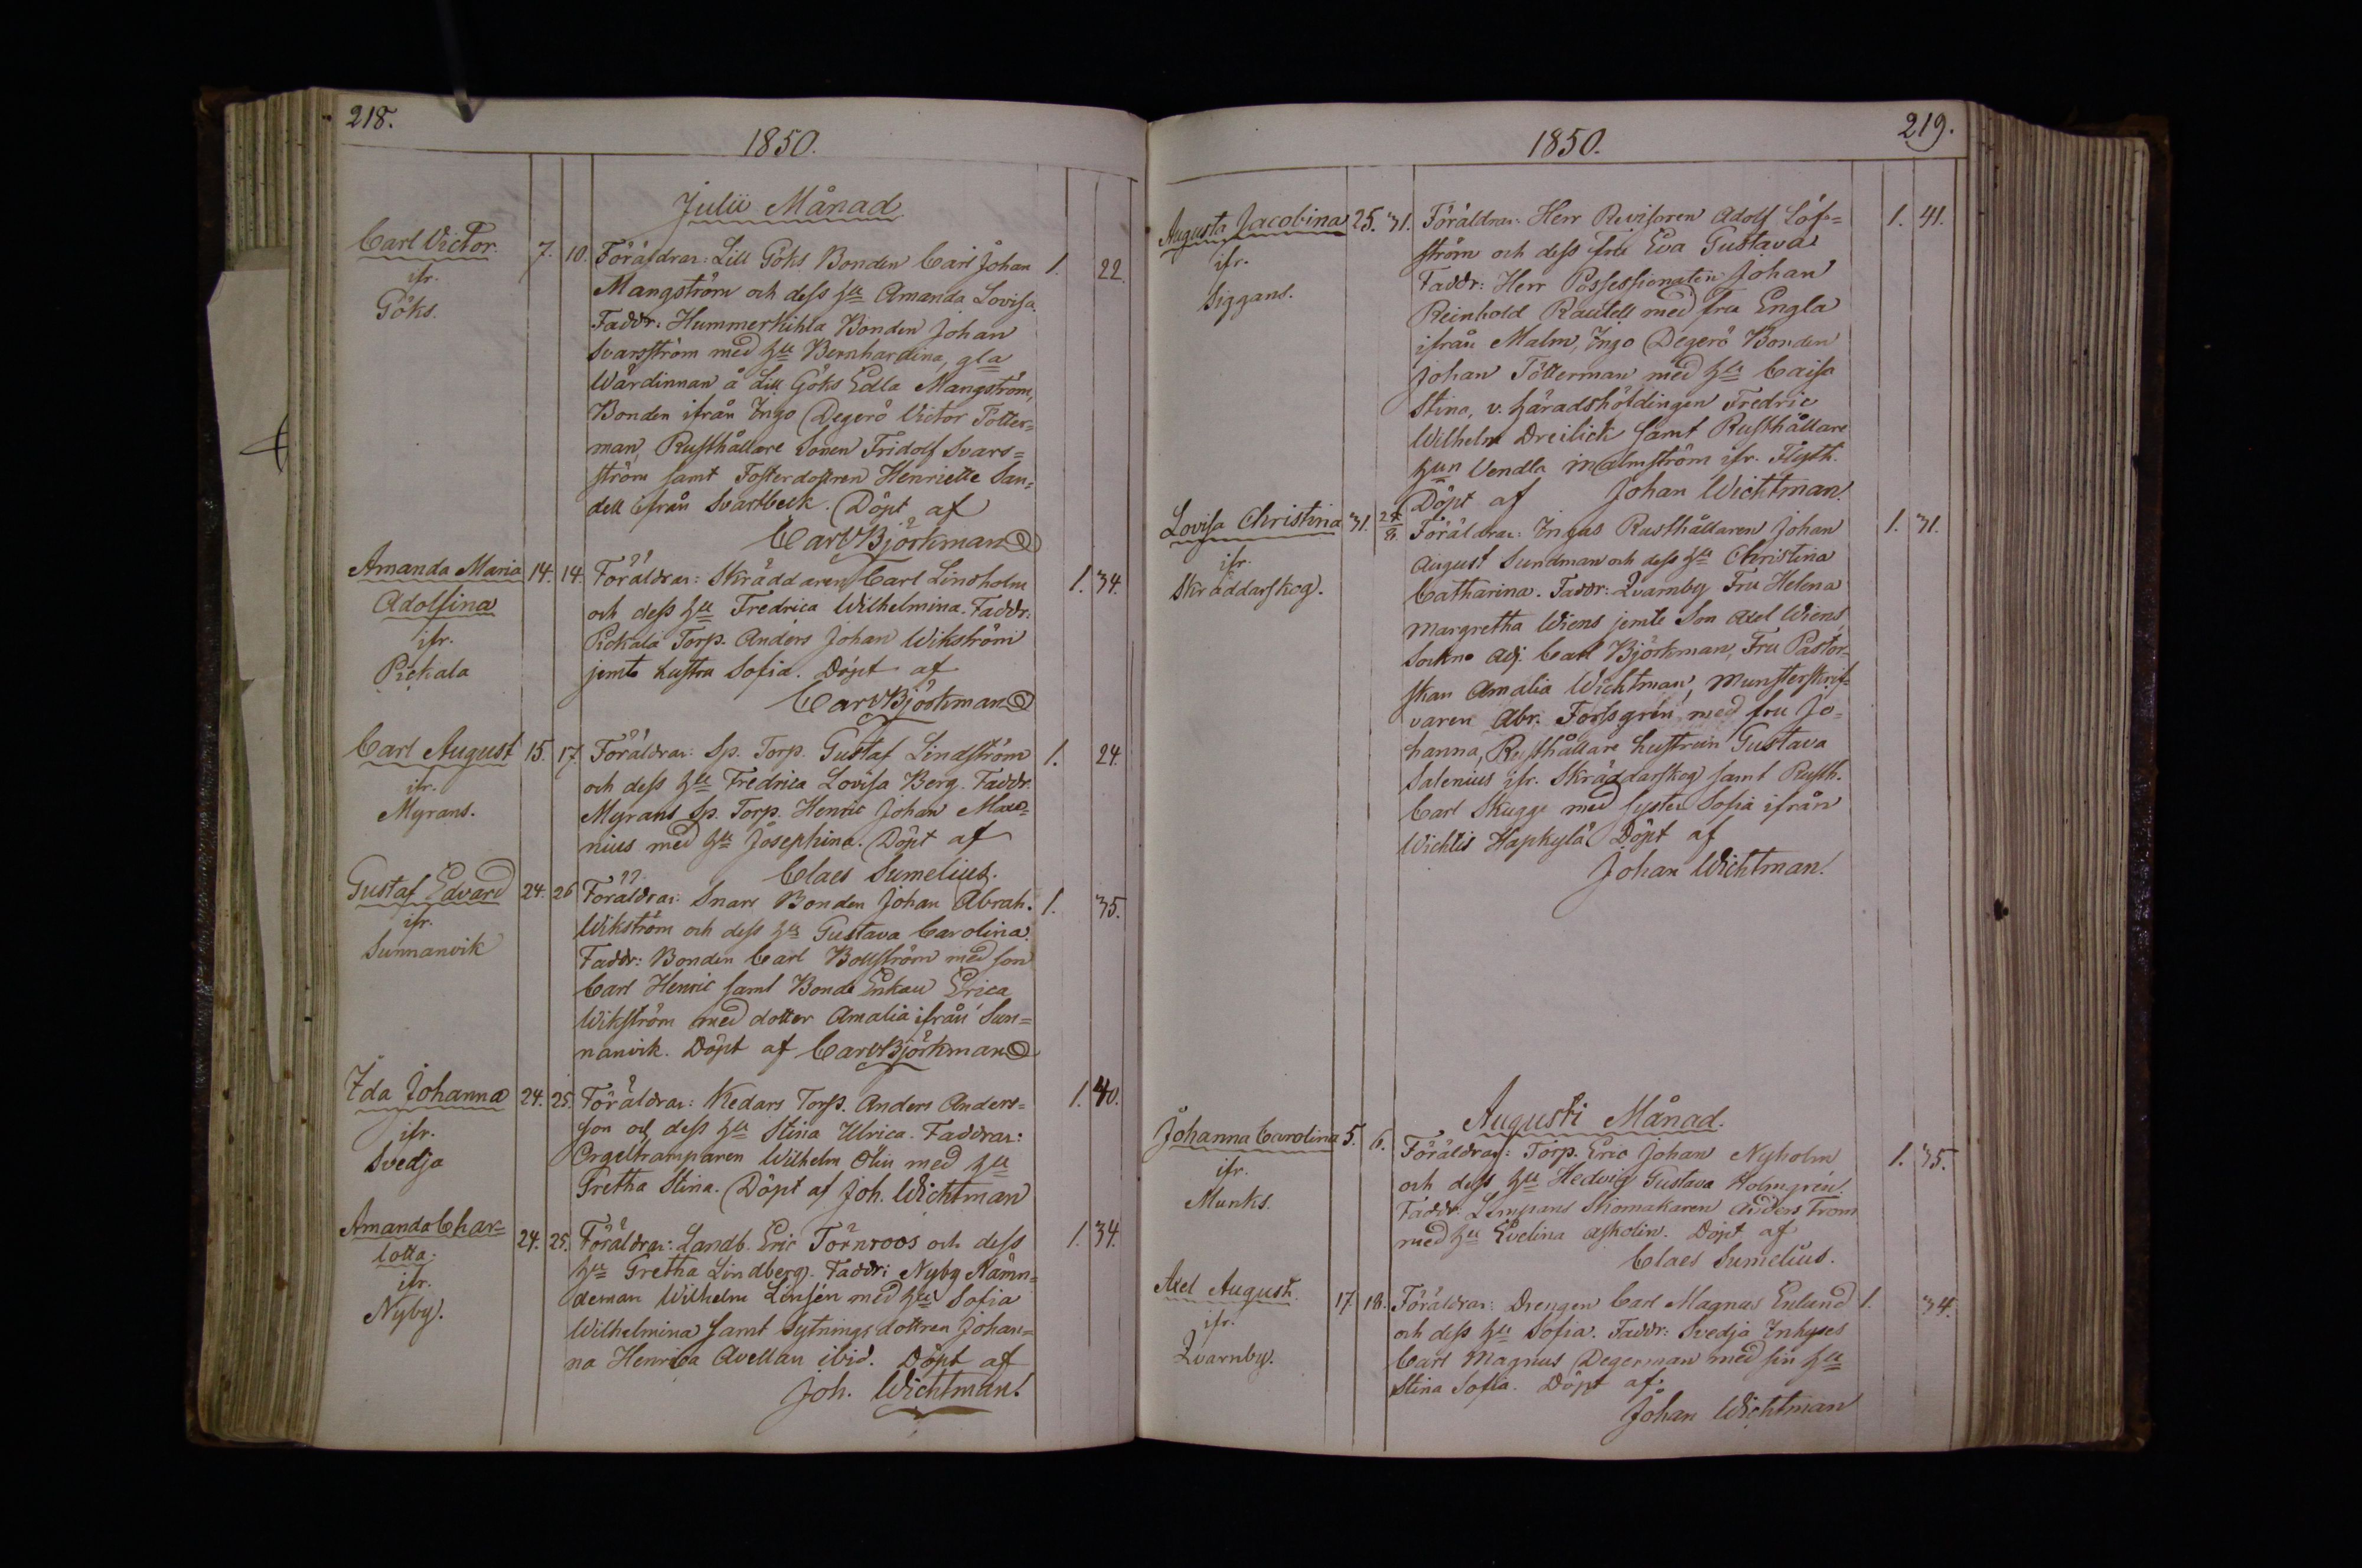 218.
1850.
Julii Månad
Carl Victor
ifr.
Göks.
7. 10. Föräldrar: Lill Göks Bonden Carl Johan 1. 22.
Mangström och dess hu Amanda Lovisa.
Faddr: Hummerkihla Bonden Johan
Svarsström med hu Bernhardina, gla
Wärdinnan å Lill Göks Edla Mangström,
Bonden ifrån Ingo Degerö Victor Tötter=
man, Rusthållare Sonen Fridolf Svars=
ström samt Fosterdottren Henriette San=
dell ifrån Svartbeck. Döpt af
Carl Björkman
Amanda Maria
Adolfina
ifr.
Pickala
14. 14. Föräldrar: Skräddaren Carl Lindholm 1. 34.
och dess hu Fredrica Wilhelmina. Faddr:
Pickala Torp. Anders Johan Wikström
jemte hustra Sofia. Döpt af
Carl Björkman
Carl August
ifr.
Myrans.
15. 17. Föräldrar: Sp. Torp. Gustaf Lindström 1. 24.
och dess hu Fredrica Lovisa Berg. Faddr.
Myrans Sp. Torp. Henric Johan
nius med hu Josephina. Döpt af
Claes Sumelius.
Gustaf Edvard
ifr.
Sunnanvik
24. 26 Föräldrar: Snars Bonden Johan Abrah. 1. 35.
Wikström och dess hu Gustava Carolina.
Faddr: Bonden Carl Bollström med son
Carl Henric samt Bonde Enkan Erica
Wikström med dotter Amalia ifrån Sun=
nanvik. Döpt af Carl Björkman
Ida Johanna
ifr.
Svedja
24. 25. Föräldrar: Kedars Torp. Anders Anders= 1. 40.
son och dess hu Stina Ulrica. Faddrar:
Orgeltramparen Wilhelm Olin med hu
Gretha Stina. Döpt af Joh. Wichtman
Amanda Char=
lotta.
ifr.
Nyby.
24. 25. Föräldrar: Landb. Eric Törnroos och dess 1. 34.
hu Gretha Lindberg. Faddr: Nyby Nämn=
deman Wilhelm Linsén med hu Sofia
Wilhelmina samt Sytningsdottren Johan=
na Henrica Avellan ibid. Döpt af
Joh. Wichtman.
219.
1850.
Augusta Jacobina
ifr.
Siggans.
25. 31. Föräldrar: Herr Revisoren Adolf Löf= 1. 41.
ström och dess fru Eva Gustava
Faddr: Herr Possessionaten Johan
Reinhold Rautell med fru Engla
ifrån Malm, Ingo Degerö Bonden
Johan Tötterman med hu Caisa
Stina, v. Häradshöfdingen Fredric
Wilhelm Dreilich samt Rusthållare
hun Vendla Malmström ifr. Flyth.
Döpt af Johan Wichtman.
Lovisa Christina
ifr.
Skräddarskog.
31. 24/8. Föräldrar: Ingas Rusthållaren Johan 1. 31.
August Sundman och dess hu Christina
Catharina. Faddr: Qvarnby Fru Helena
Margretha Wiens jemte Son Axel Wiens,
Sockne Adj. Carl Björkman, Fru Pastor=
skan Amalia Wichtman, Munsterskrif=
varen Abr. Forssgrén med fru Jo=
hanna, Rusthållare hustrun Gustava
Salenius ifr. Skräddarskog samt Rusth.
Carl Skugge med syster Sofia ifrån
Wichtis Hapkylä Döpt af
Johan Wichtman.
Augusti Månad.
Johanna Carolina
ifr.
Munks.
5. 6. Föräldrar: Torp. Eric Johan Nyholm 1. 35.
och dess hu Hedvig Gustava Holmgrén.
Faddr: Limpans Skomakaren Anders From
med hu Evelina Askolin. Döpt af
Claes Sumelius.
Axel August
ifr.
Qvarnby.
17. 18. Föräldrar: Drengen Carl Magnus Enlund 1. 34.
och dess hu Sofia. Faddr: Svedja Inhyses
Carl Magnus Degerman med sin hu
Stina Sofia. Döpt af:
Johan Wichtman